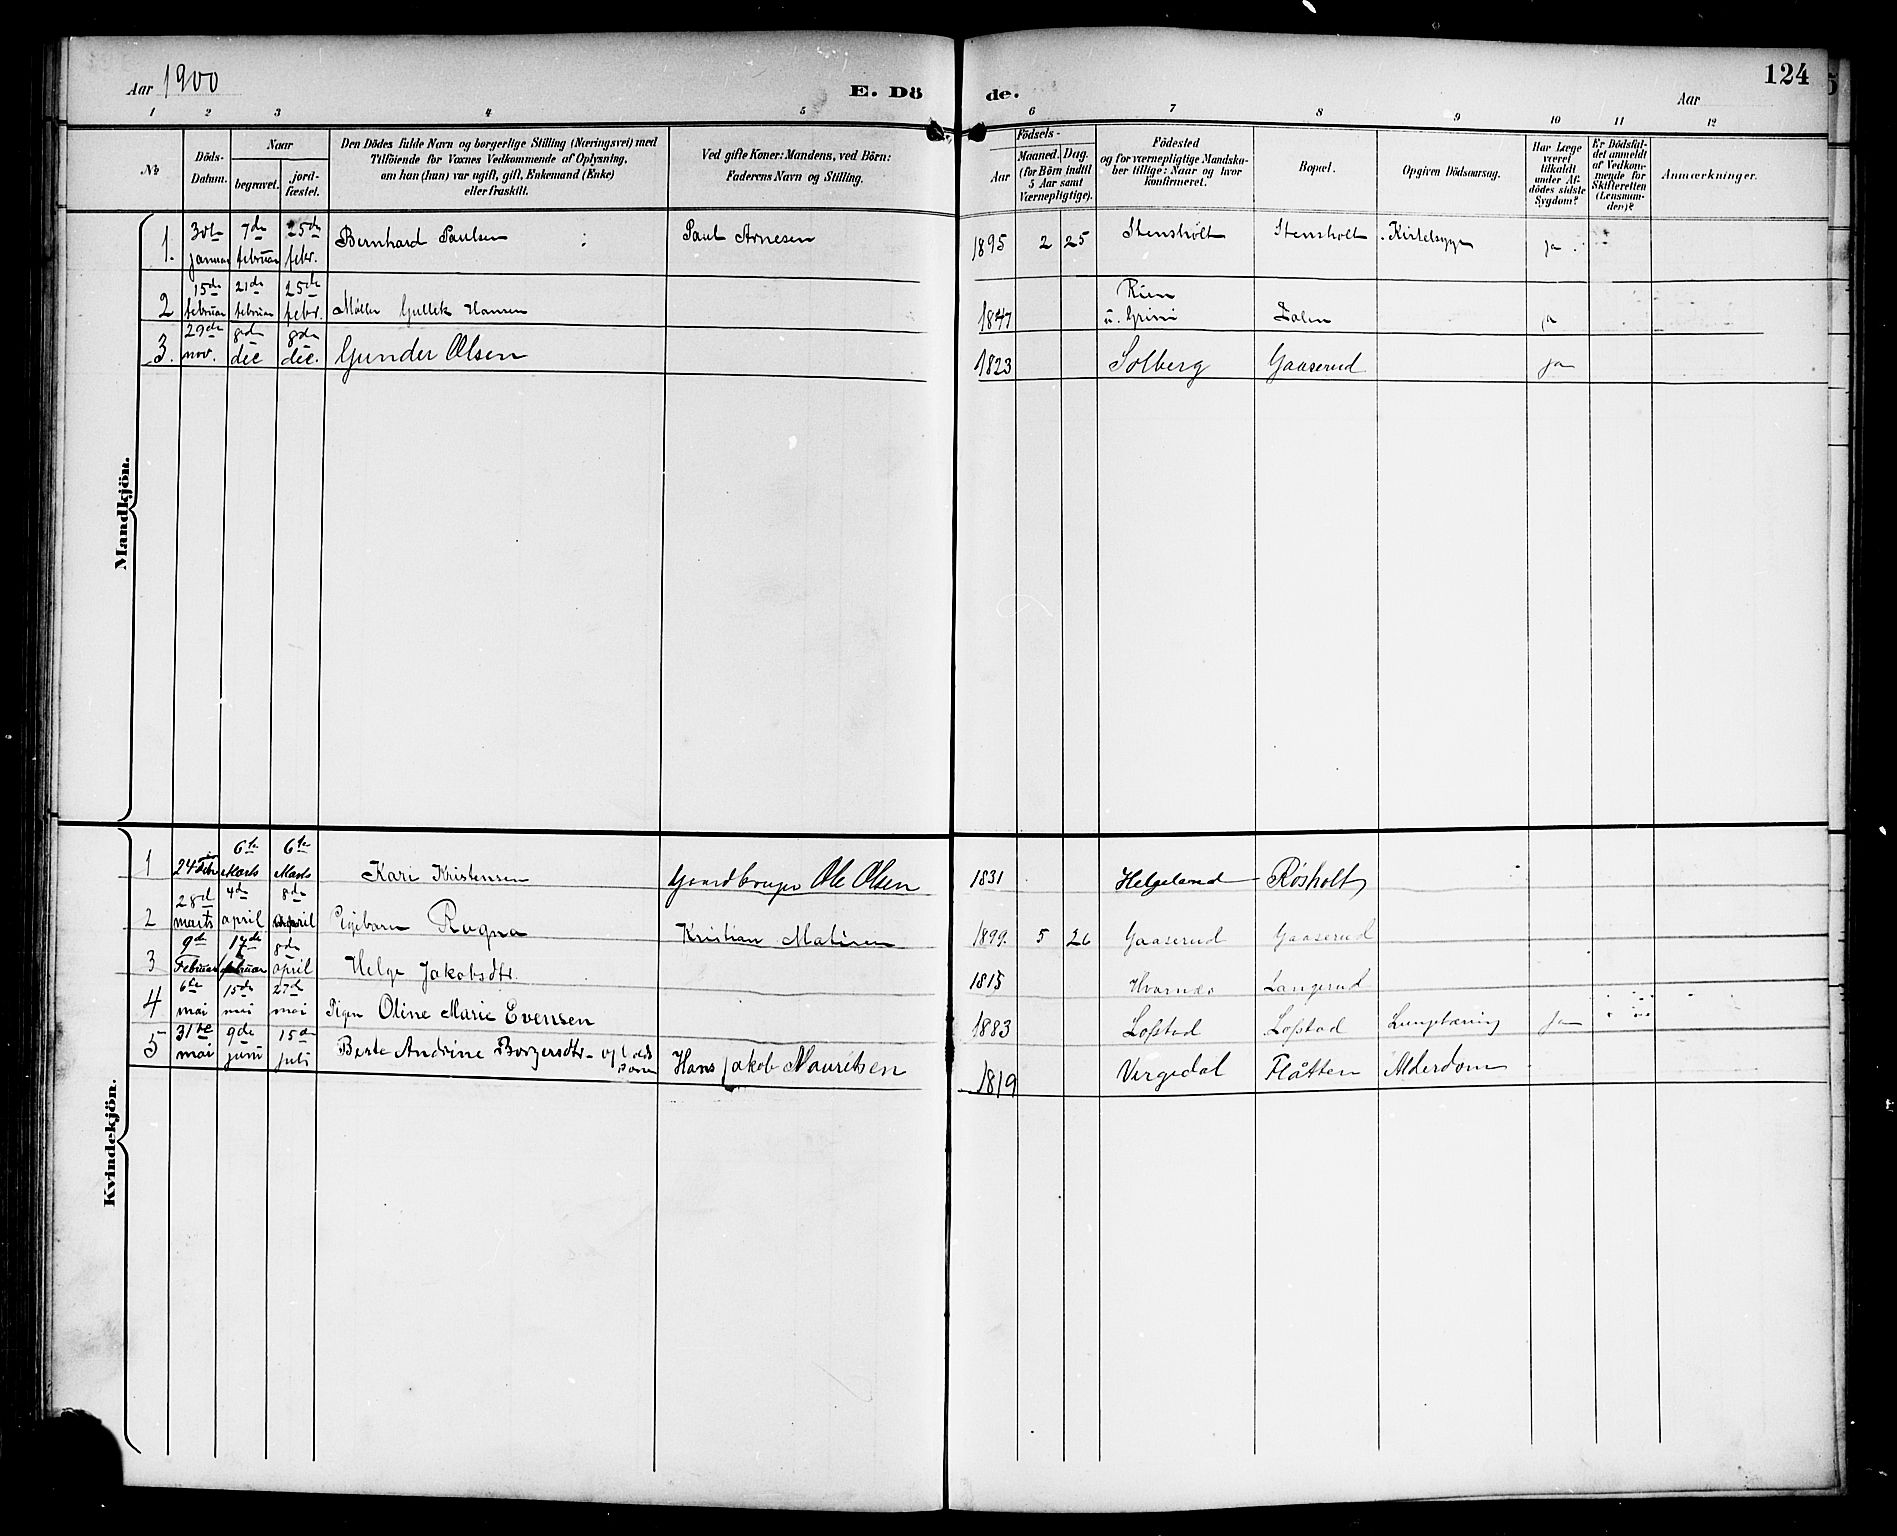 Aar 1900 E. Dö de. Aar 124
1 2 3 4 5 6 7 8 9 10 11 12
No. Döds-Datum. Naar begravet. jordfæstet. Den Dödes fulde Navn og borgerlige Stilling (Næringsvei) med Tilföiende for Voxnes Vedkommende af Oplysning, om han (hun) var ugift, gift, Enkemand (Enke) eller fraskilt. Ved gifte Koner: Mandens, ved Börn: Faderens Navn og Stilling. Födsels- Aar Maaned. Dag. (for Börn indtil 5 Aar samt Værnepligtige). Födested og for værnepligtige Mandskaber tillige: Naar og hvor konfirmeret. Bopæl. Opgiven Dödsaarsag. Har Læge været tilkaldt under Afdödes sidste Sygdom? Er Dödsfaldet anmeldt af Vedkommende for Skifteretten (Lensmanden)? Anmærkninger.
Mandkjön.
1. 30te januar 7de februar 25de febr. Bernhard Paulsen Paul Arnesen 1895 2 25 Stensholt Stensholt Kirtelsyge ja
2 15de februar 21de februar 25de febr. Møller Gullek Hansen 1847 Rien u. Grini ja
3. 29de nov. 8de dec 8de dec. Gunder Olsen 1823 Solberg Gaaserud ja
Kvindekjön.
1 24de Febr 6te Marts 6te Marts Kari Kristensen Gaardbruger Ole Olsen 1831 Helgeland Røsholt
2 28de marts 4de april 8de april Pigebarn Ragna Kristian Matisen 1899. 5 26 Gaaserud Gaaserud
3 9de Februar 17de februar 8de april Helge Jakobsdtr. 1815 Hvarnæs Langerud
4 6te mai 15de mai 27de mai Pigen Oline Marie Evensen 1883 Lofstad Lofstad Lungetæring Ja
5 31te mai 9de juni 15de juli Berte Andrine Borgersdtr- Hans Jakob Mauritsen 1819 Vergedal Flåtten Alderdom